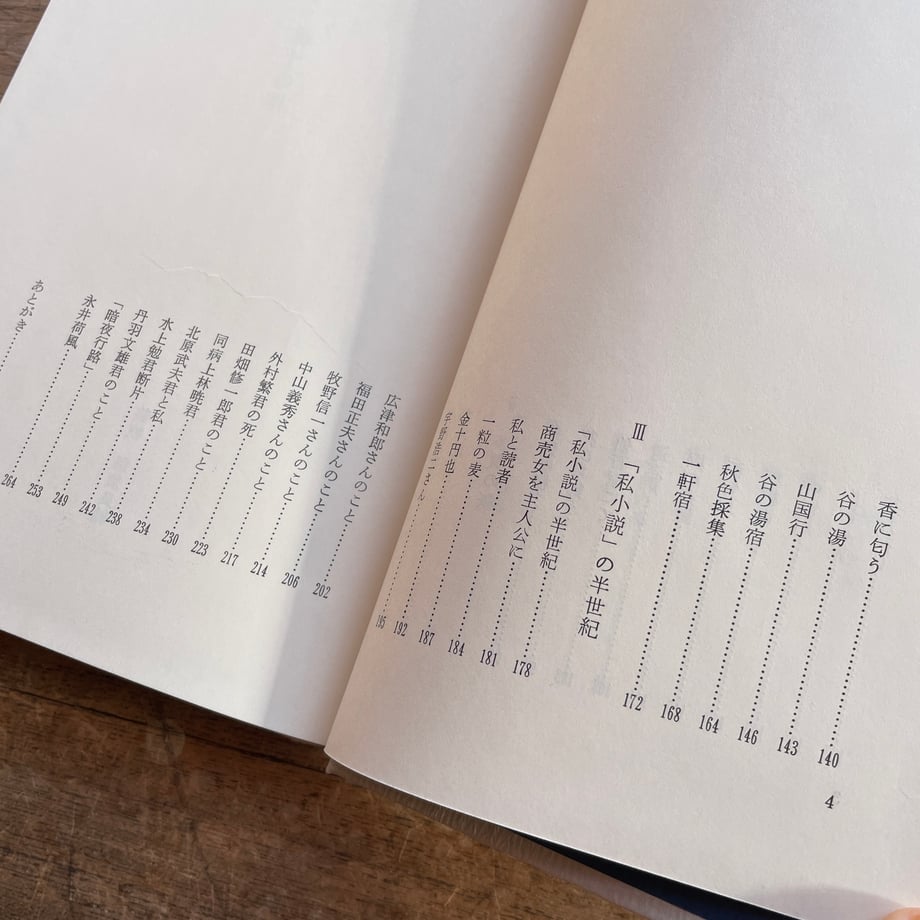 香に匂う……140
谷の湯……143
山国行……146
谷の湯宿……164
秋色採集……168
一軒宿……172
Ⅲ 「私小説」の半世紀
「私小説」の半世紀……178
商売女を主人公に……181
私と読者……184
一粒の麦……187
金十円也……192
宇野浩二さん……195
4
広津和郎さんのこと……202
福田正夫さんのこと……206
牧野信一さんのこと……214
中山義秀さんのこと……217
外村繁君の死……223
田畑修一郎君のこと……230
同病上林暁君……234
北原武夫君と私……238
水上勉君断片……242
丹羽文雄君のこと……249
「暗夜行路」……253
永井荷風……264
あとがき……